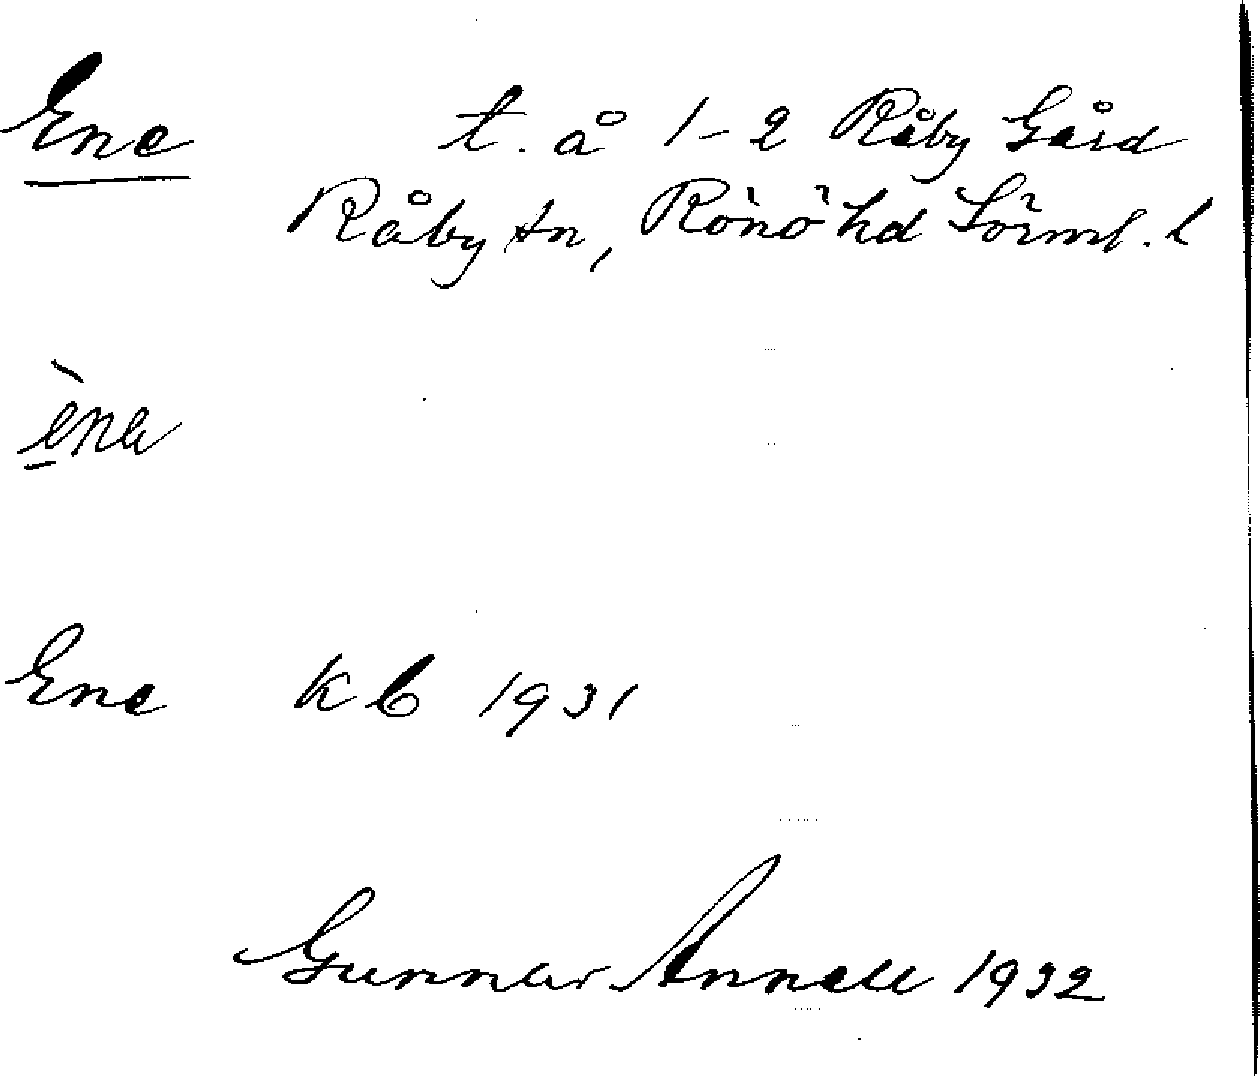 Ene t. å 1-2 Råby Gård
Råby sn, Rönö hd Sörml. l
èna
Ene K b 1931
Gunnar Annell 1932